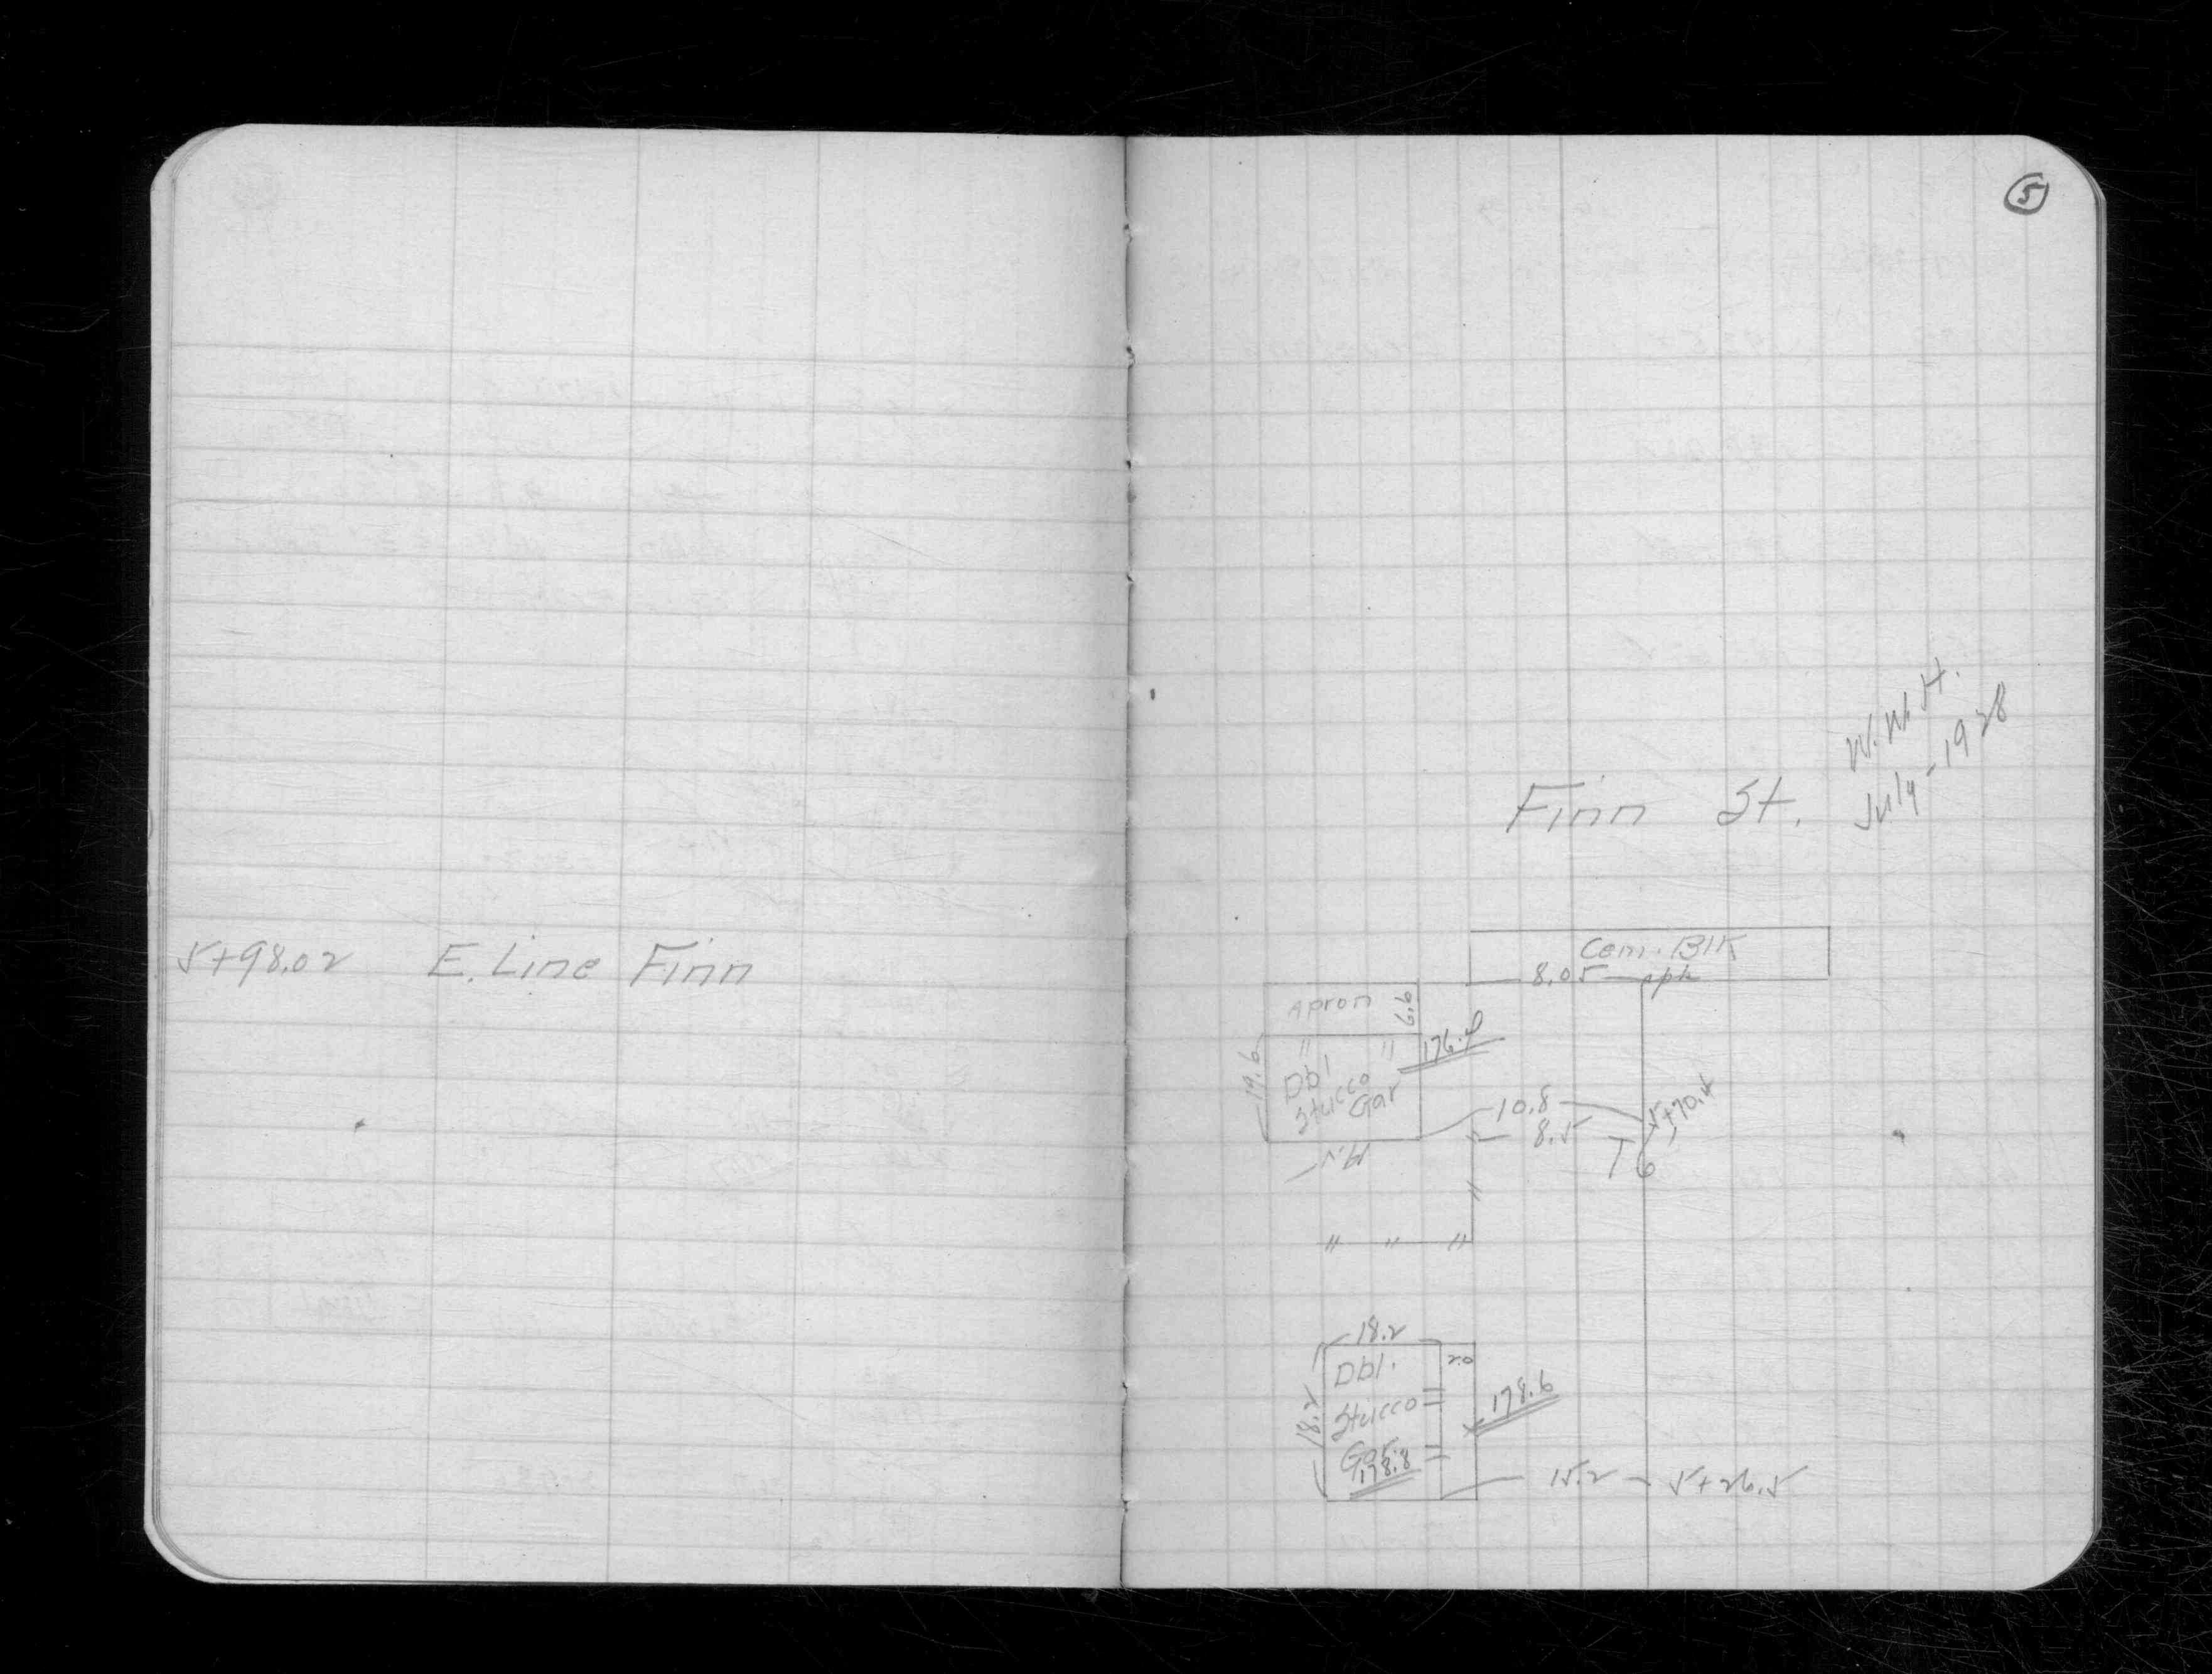 5
W. W. H.
July-1928
Finn St.
5+98.02 E. Line Finn
Cem. Blk
8.05 spk
Apron 6.6
" "
176.9
19.6
Dbl
Stucco
Gar
10.8
5+70.4
8.5
T 6
"
" " "
18.2
Dbl. 2.0
Stucco
178.6
18.2
Gar.
178.8
15.2 5+26.5